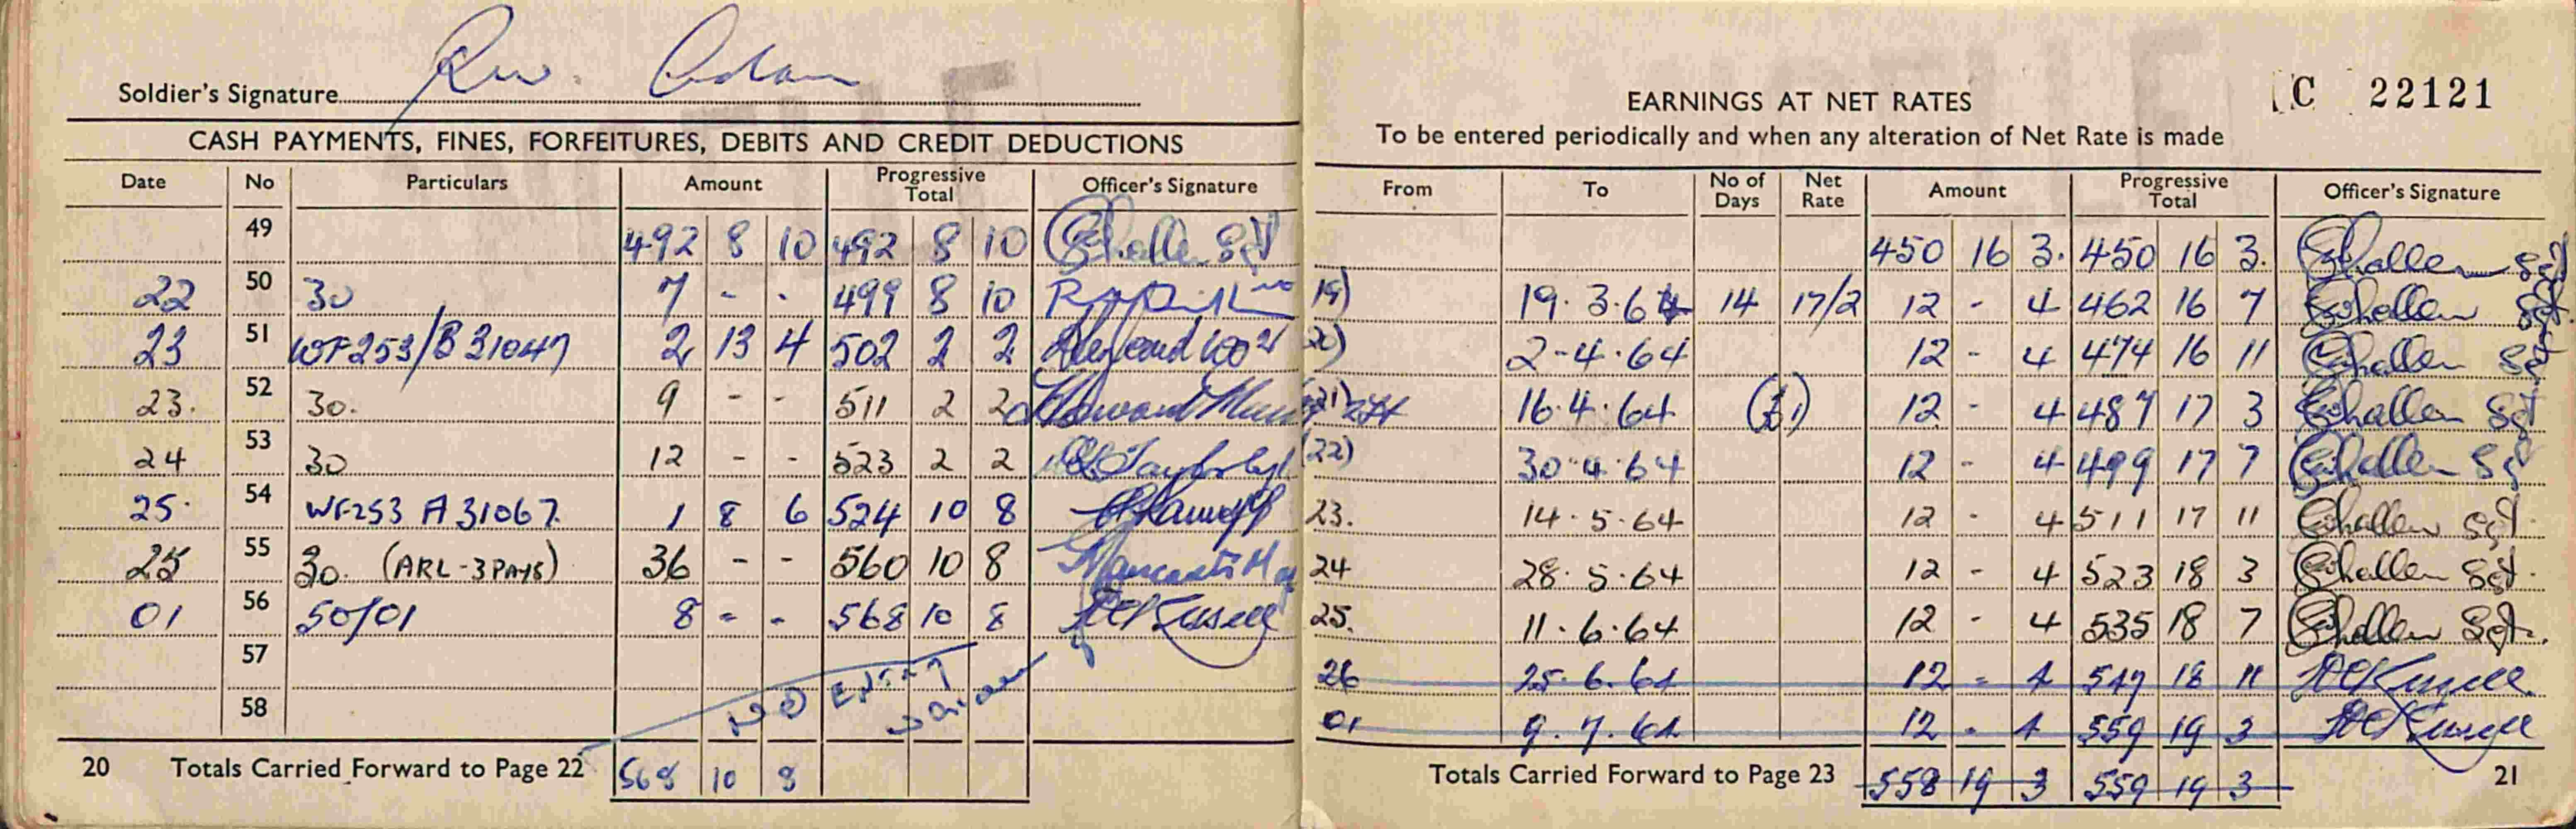 Soldier's Signature
CASH PAYMENTS, FINES, FORFEITURES, DEBITS AND CREDIT DEDUCTIONS
Date No Particulars Amount Progressive Total Officer's Signature
49 492 8 10 492 8 10 Challen Sgt
22 50 30 7 - - 499 8 10
23 51 WF253/B31047 2 13 4 502 2 2
23. 52 30. 9 - - 511 2 2
24 53 30 12 - - 523 2 2
25. 54 WF253 A31067. 1 8 6 524 10 8
25 55 30. (ARL-3PAYS) 36 - - 560 10 8
01 56 50/01 8 - - 568 10 8
57
58 NO ENTRY
20 Totals Carried Forward to Page 22 568 10 8
C 22121
EARNINGS AT NET RATES
To be entered periodically and when any alteration of Net Rate is made
From To No of Days Net Rate Amount Progressive Total Officer's Signature
450 16 3. 450 16 3. Challen Sgt
19) 19.3.64 14 17/2 12 - 4 462 16 7 Challen Sgt.
20) 2-4.64 12 - 4 474 16 11 Challen Sgt
(21) 16.4.64 12 - 4 487 17 3 Challen Sgt
(22) 30.4.64 12 - 4 499 17 7 Challen Sgt
23. 14.5.64 12 - 4 511 17 11 Challen Sgt.
24 28.5.64 12 - 4 523 18 3 Challen Sgt.
25. 11.6.64 12 - 4 535 18 7 Challen Sgt.
26 25.6.64 12 - 4 547 18 11
01 9.7.64 12 - 4 559 19 3
Totals Carried Forward to Page 23 558 19 3 559 19 3 21